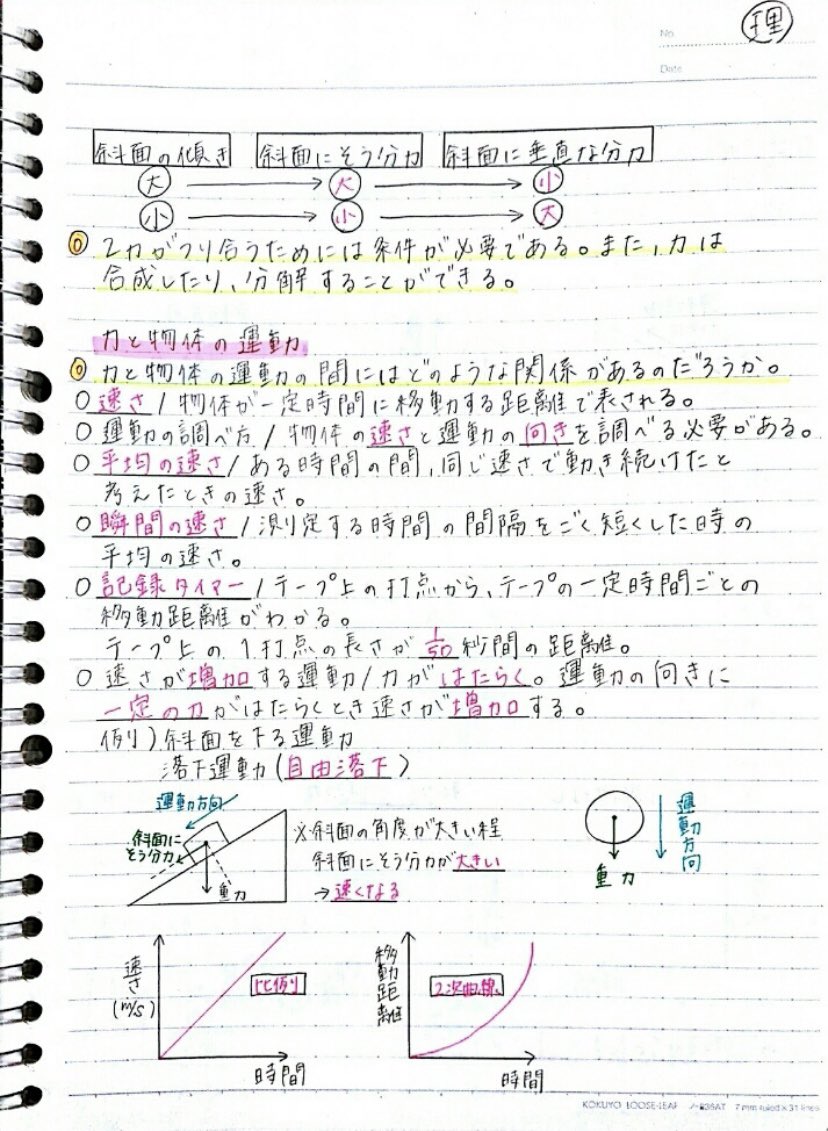 理
No.
Date
斜面の傾き 斜面にそう分力 斜面に垂直な分力
大 → 大 → 小
小 → 小 → 大
◎ 2力がつり合うためには条件が必要である。また、力は
合成したり、分解することができる。
力と物体の運動
◎ 力と物体の運動の間にはどのような関係があるのだろうか。
○ 速さ / 物体が一定時間に移動する距離で表される。
○ 運動の調べ方 / 物体の速さと運動の向きを調べる必要がある。
○ 平均の速さ / ある時間の間、同じ速さで動き続けたと
考えたときの速さ。
○ 瞬間の速さ / 測定する時間の間隔をごく短くした時の
平均の速さ。
○ 記録タイマー / テープ上の打点から、テープの一定時間ごとの
移動距離がわかる。
テープ上の1打点の長さが1/50秒間の距離。
○ 速さが増加する運動 / 力がはたらく。運動の向きに
一定の力がはたらくとき速さが増加する。
例) 斜面を下る運動
落下運動(自由落下)
運動方向
斜面に
そう分力
重力
※斜面の角度が大きい程
斜面にそう分力が大きい
→速くなる
重力
運動方向
速さ
(m/s)
比例
時間
移動距離
2次曲線
時間
KOKUYO LOOSE-LEAF ノ-836AT 7 mm ruled × 31 lines